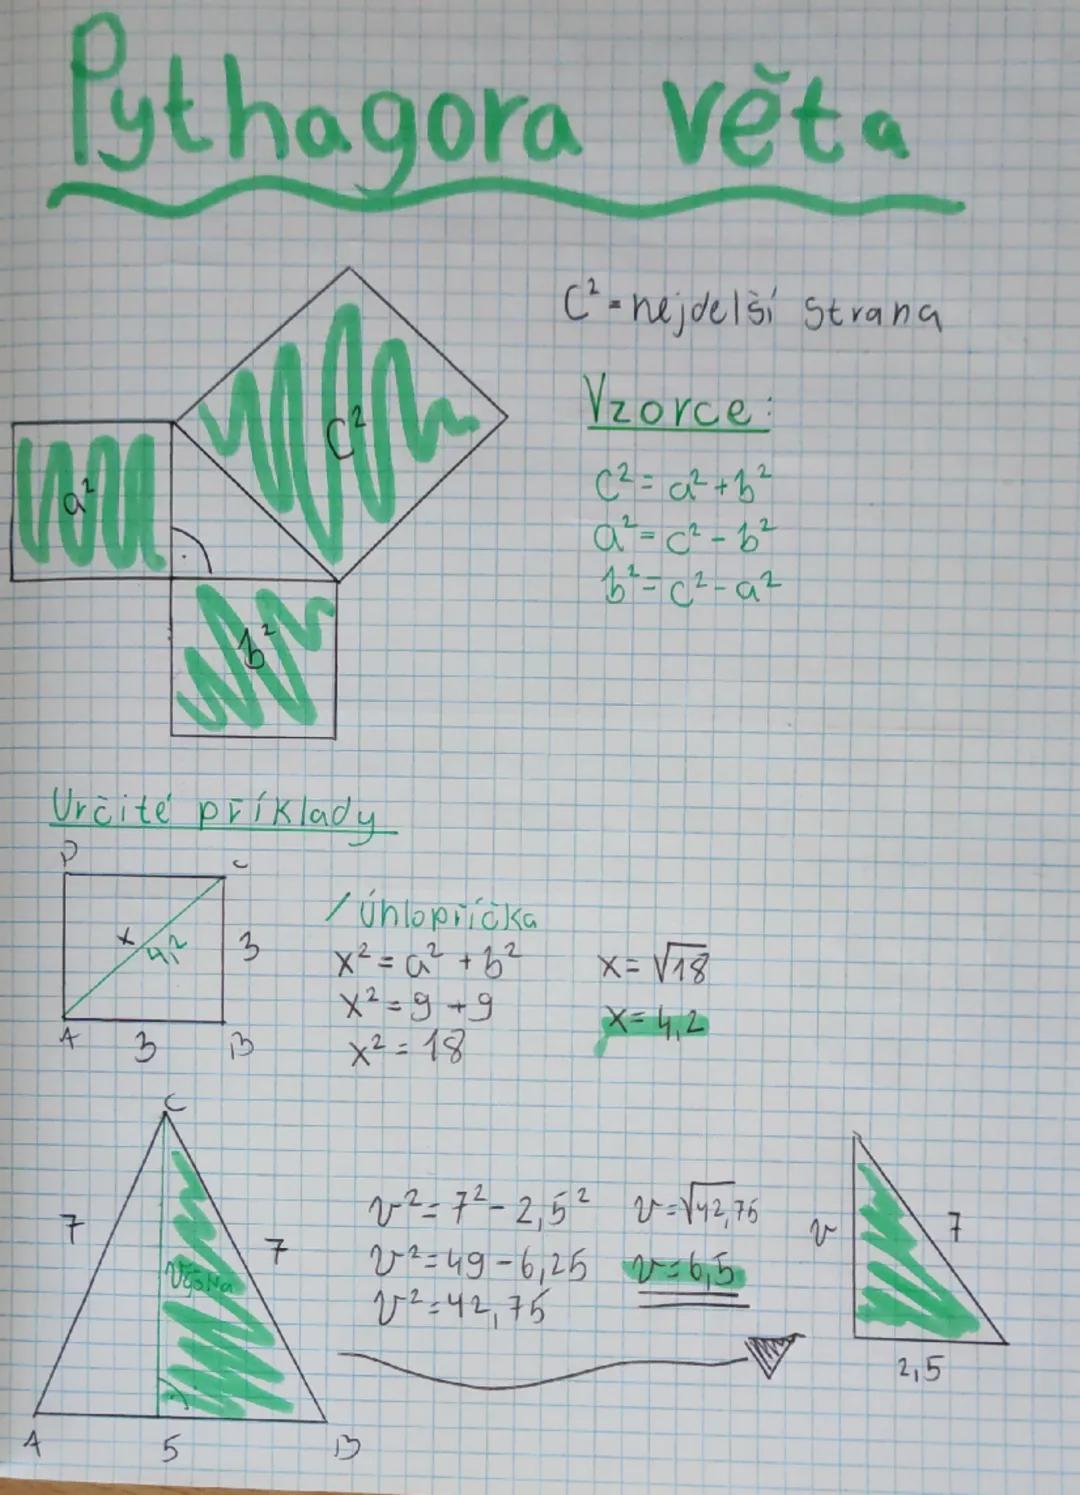 Pythagora věta
c² = nejdelší strana
Vzorce:
c² = a² + b²
a² = c² - b²
b² = c² - a²
c²
a²
b²
Určité příklady
D
C
x
3
A
3
B
/ úhlopříčka
x² = a² + b²
x² = 9 + 9
x² = 18
x = √18
x = 4,2
C
7
7
výška
A
5
B
v² = 7² - 2,5²
v² = 49 - 6,25
v² = 42,75
v = √42,75
v = 6,5
v
7
2,5